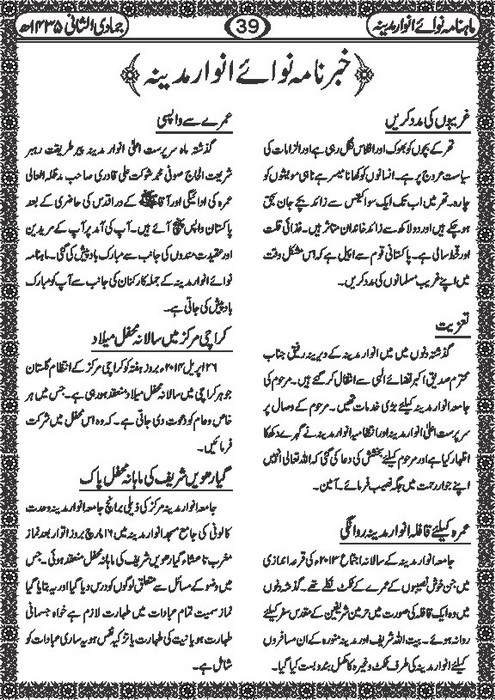 ماہنامہ نوائے انوار مدینہ
39
جمادی الثانی ۱۴۳۵ھ
خبر نامہ نوائے انوار مدینہ
غریبوں کی مدد کریں
تھر کے بچوں کو بھوک اور افلاس نگل رہی ہے اور الزامات کی
سیاست عروج پر ہے۔ انسانوں کو کھانا میسر ہے نا ہی مویشیوں کو
چارہ۔ تھر میں اب تک ایک سو اکیس سے زائد بچے جان بحق
ہو چکے ہیں اور دو لاکھ سے زائد خاندان متاثر ہیں۔ غذائی قلت
اور قحط سالی ہے۔ پاکستانی قوم سے اپیل ہے کہ اس مشکل وقت
میں اپنے غریب مسلمانوں کی مدد کریں۔
تعزیت
گذشتہ دنوں میں میں انوار مدینہ کے دیرینہ رفیق جناب
محترم صدیق اکبر قضائے الٰہی سے انتقال کر گئے ہیں۔ مرحوم کی
جامعہ انوار مدینہ کیلئے بڑی خدمات تھیں۔ مرحوم کے وصال پر
سرپرست اعلیٰ انوار مدینہ اور انتظامیہ انوار مدینہ نے گہرے دکھ کا
اظہار کیا ہے اور مرحوم کیلئے بخشش کی دعا کی گئی کہ اللہ تعالیٰ انہیں
اپنے جوار رحمت میں جگہ نصیب فرمائے۔ آمین۔
عمرہ کیلئے قافلہ انوار مدینہ روانگی
جامعہ انوار مدینہ کے سالانہ اجتماع ۲۰۱۳ء کی قرعہ اندازی
میں جن خوش نصیبوں کے عمرے کے ٹکٹ نکلے تھے۔ گذشتہ دنوں
میں وہ ایک قافلہ کی صورت میں حرمین شریفین کے مقدس سفر کیلئے
روانہ ہوئے۔ بیت اللہ شریف اور مدینہ منورہ کے ان مسافروں
کیلئے انوار مدینہ کی طرف ٹکٹ وغیرہ کا مکمل بندوبست کیا گیا۔
عمرے سے واپسی
گذشتہ ماہ سرپرست اعلیٰ انوار مدینہ پیر طریقت رہبر
شریعت الحاج صوفی محمد شوکت علی قادری صاحب مدظلہ العالی
عمرہ کی ادائیگی اور آقا ﷺ کے در اقدس کی حاضری کے بعد
پاکستان واپس پہنچ آئے ہیں۔ آپ کی آمد پر آپ کے مریدین
اور عقیدت مندوں کی جانب سے مبارک باد پیش کی گئی۔ ماہنامہ
نوائے انوار مدینہ کے جملہ کارکنان کی جانب سے آپ کو مبارک
باد پیش کی جاتی ہے۔
کراچی مرکز میں سالانہ محفل میلاد
۲۶ اپریل ۲۰۱۴ء بروز ہفتہ کو کراچی مرکز کے انتظام گلستان
جوہر کراچی میں سالانہ محفل میلاد منعقد ہو رہی ہے۔ جس میں ہر
خاص و عام کو دعوت دی جاتی ہے۔ کہ وہ اس محفل میں شرکت
فرمائیں۔
گیارھویں شریف کی ماہانہ محفل پاک
جامعہ انوار مدینہ مرکز کی ذیلی برانچ جامعہ انوار مدینہ وحدت
کالونی کی جامع مسجد انوار مدینہ میں ۱۶ مارچ بروز اتوار بعد نماز
مغرب تا عشاء گیارھویں شریف کی ماہانہ محفل منعقد ہوئی۔ جس
میں وضو کے مسائل سے متعلق لوگوں کو درس دیا گیا اور یہ بتایا گیا
نماز سمیت تمام عبادات میں طہارت لازم ہے خواہ جسمانی
طہارت ہو یا نیت کی طہارت یا تزکیہ نفس ہو یہ ساری عبادات کو
شامل ہے۔